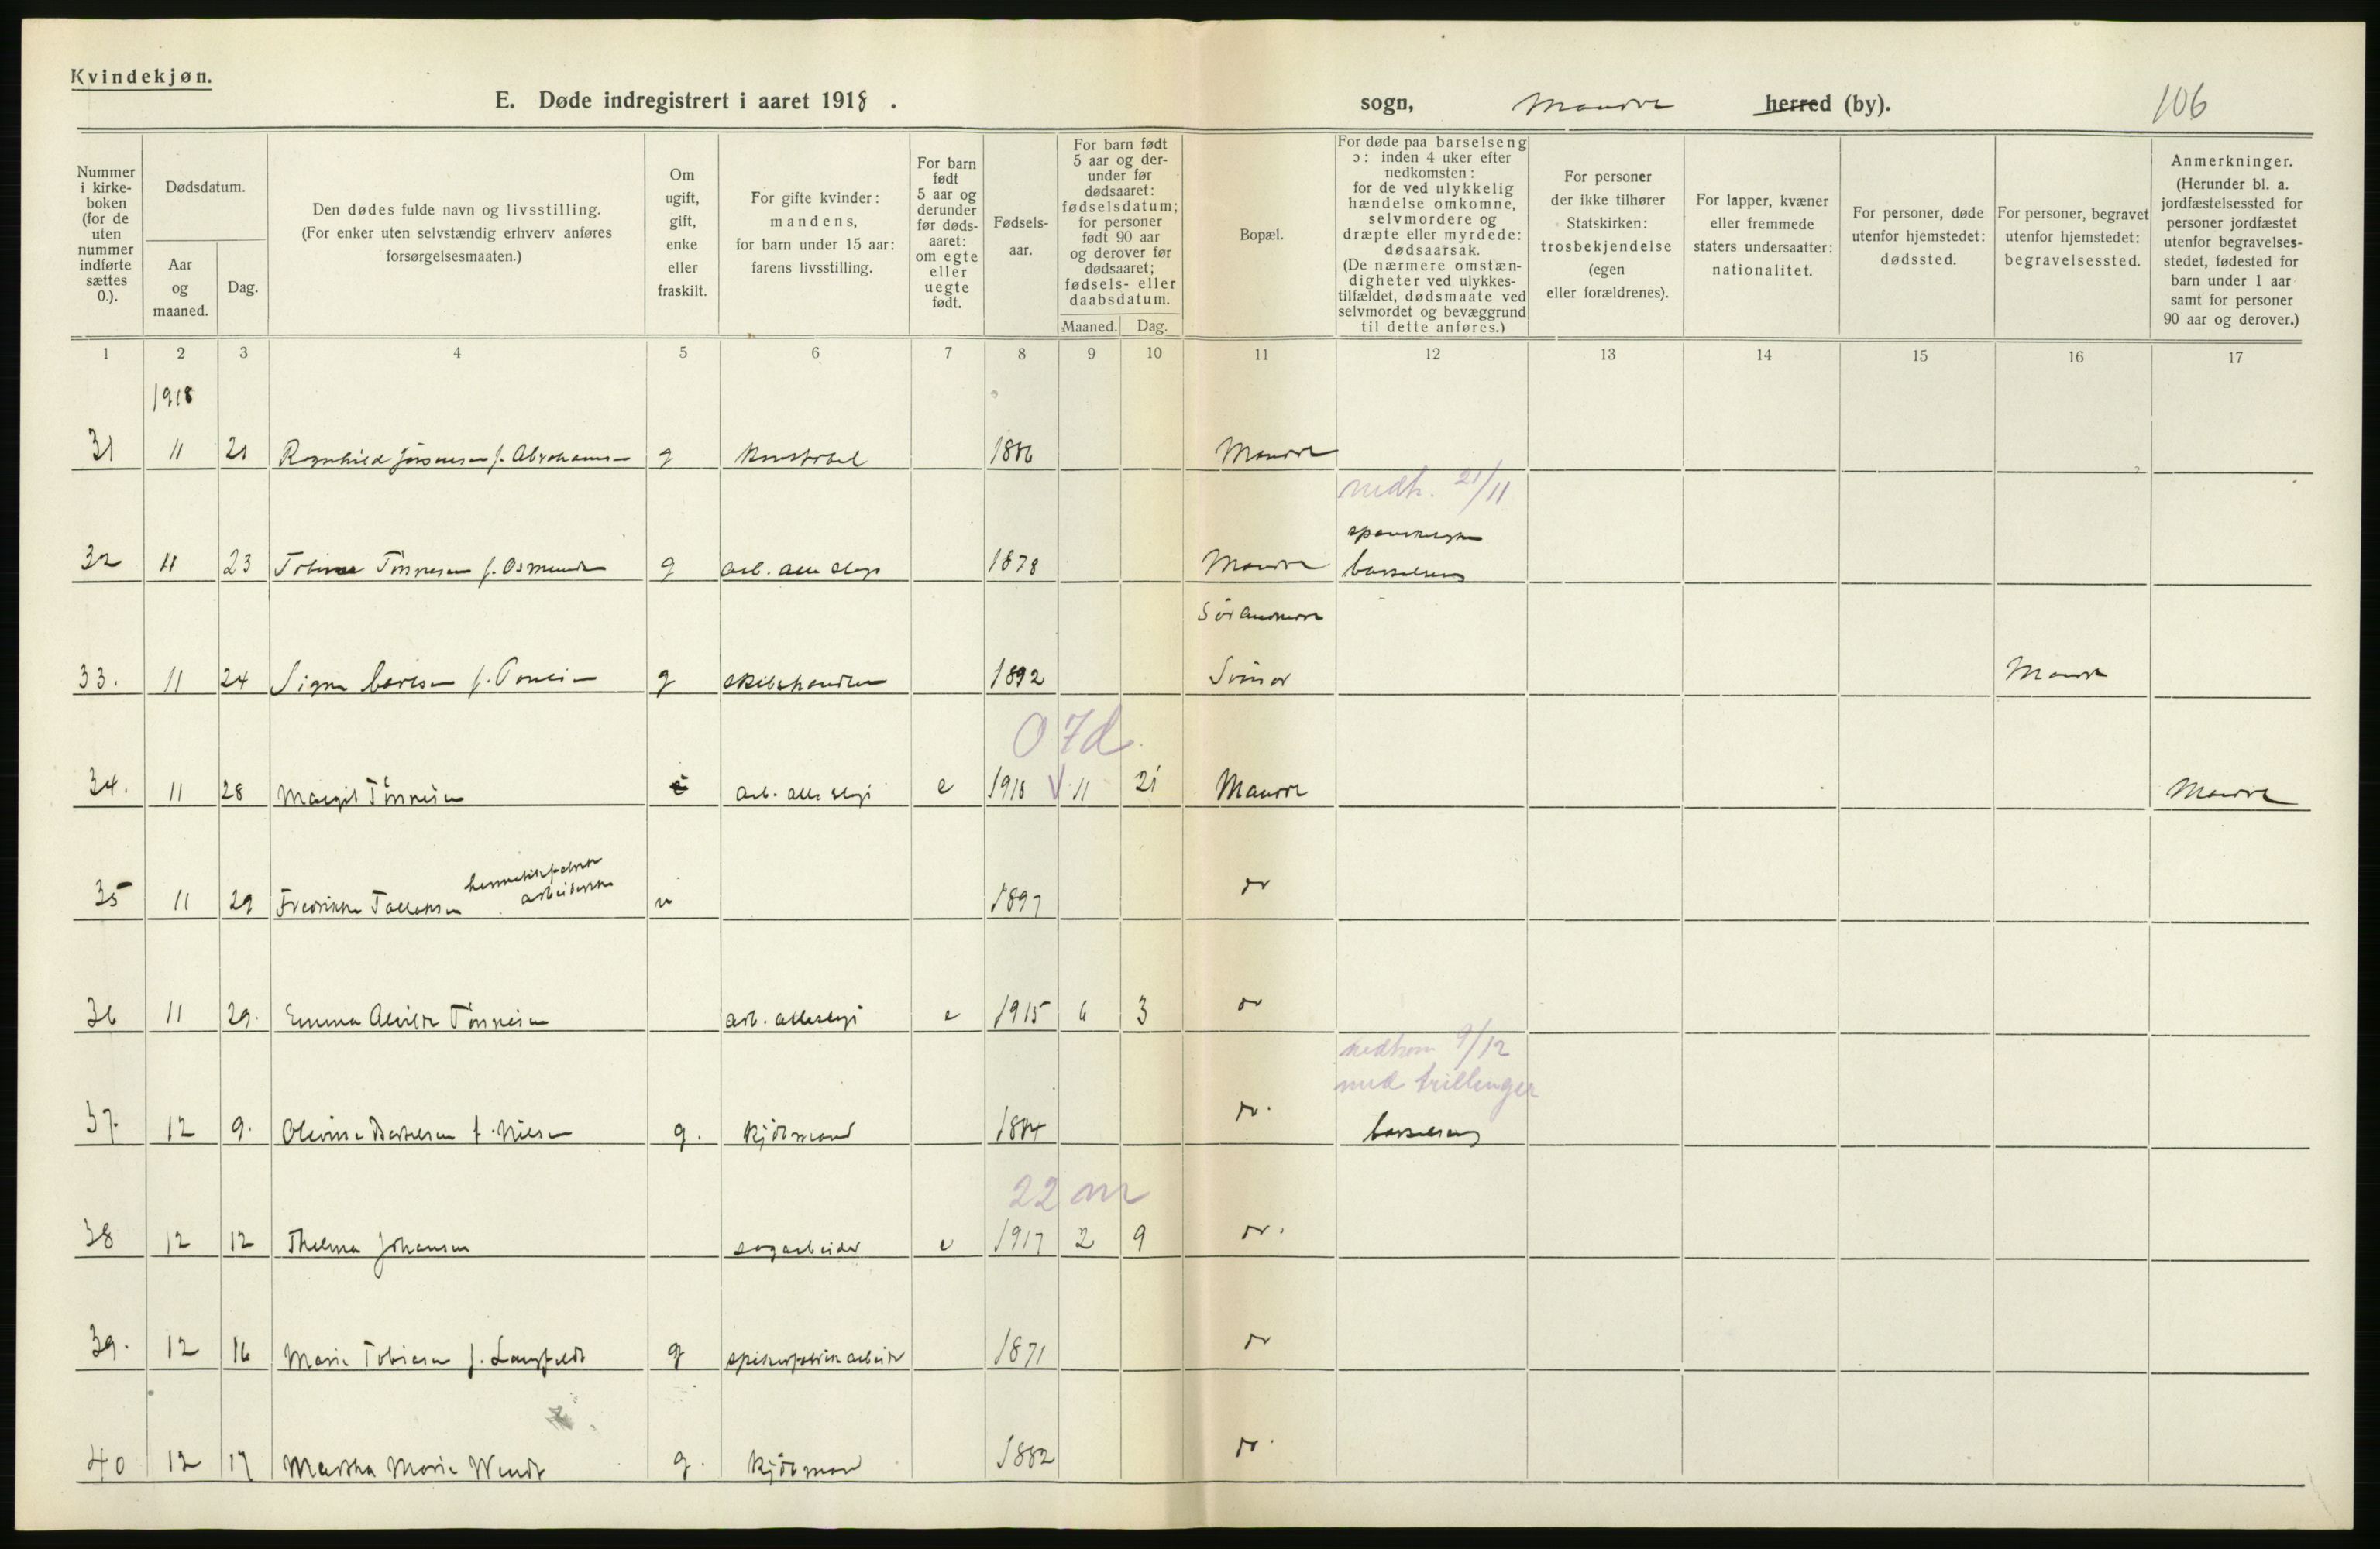 Kvindekjøn.
E. Døde indregistrert i aaret 1918.
sogn, herred (by).
106
Nummer i kirkeboken (for de uten nummer indførte sættes 0.).
Dødsdatum.
Aar og maaned.
Dag.
Den dødes fulde navn og livsstilling.
(For enker uten selvstændig erhverv anføres forsørgelsesmaaten.)
Om ugift, gift, enke eller fraskilt.
For gifte kvinder: mandens, for barn under 15 aar: farens livsstilling.
For barn født 5 aar og derunder før dødsaaret: om egte eller uegte født.
Fødselsaar.
For barn født 5 aar og derunder før dødsaaret: fødselsdatum; for personer født 90 aar og derover før dødsaaret; fødsels- eller daabsdatum.
Maaned. Dag.
Bopæl.
For døde paa barselseng ɔ: inden 4 uker efter nedkomsten: for de ved ulykkelig hændelse omkomne, selvmordere og dræpte eller myrdede: dødsaarsak.
(De nærmere omstændigheter ved ulykkestilfældet, dødsmaate ved selvmordet og bevæggrund til dette anføres.)
For personer der ikke tilhører Statskirken: trosbekjendelse (egen eller forældrenes).
For lapper, kvæner eller fremmede staters undersaatter: nationalitet.
For personer, døde utenfor hjemstedet: dødssted.
For personer, begravet utenfor hjemstedet: begravelsessted.
Anmerkninger.
(Herunder bl. a. jordfæstelsessted for personer jordfæstet utenfor begravelsesstedet, fødested for barn under 1 aar samt for personer 90 aar og derover.)
1 2 3 4 5 6 7 8 9 10 11 12 13 14 15 16 17
1918
31 11 21 Ragnhild f. Abrahamsen g 1886
nedk. 21/11
32 11 23 Tønnesen f. Osmundsen g arb. alle slags 1878 barselseng
33. 11 24 Signe f. g 1892
0 7d.
34. 11 28 Margit Tønnesen arb. alle slags e 1918 11 21
35 11 29 Fredrikke Tallaksen hermetikfabrik arbeiderske u 1897 do
36 11 29. Emma Alvilde Tønnesen arb. alleslags e 1915 6 3 do
nedkom 9/12
med trillinger
37. 12 9. Olevine Bertelsen f. Nilsen g. kjøbmand 1884 do. barselseng
22 m
38 12 12 Thelma Johansen sagarbeider e 1917 2 9 do.
39. 12 16 Marie Tobiasen f. Langfeldt g spikerfabrikarbeider 1871 do
40 12 17 Martha Marie Wendt g. kjøbmand 1882 do.